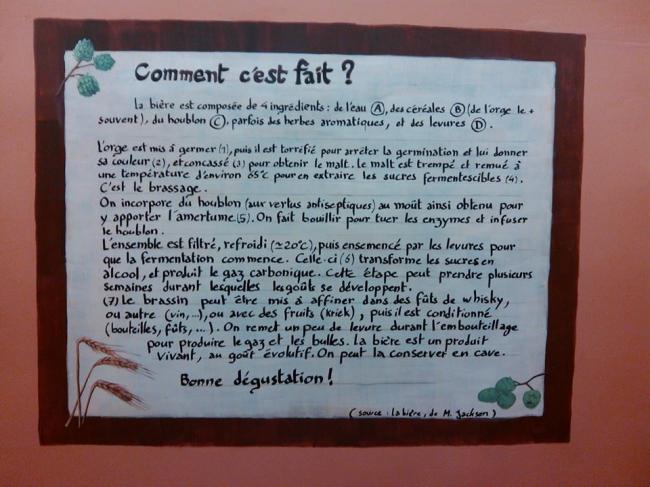 Comment c'est fait ?
la bière est composée de 4 ingrédients : de l'eau (A), des céréales (B) (de l'orge le +
souvent), du houblon (C), parfois des herbes aromatiques, et des levures (D).
L'orge est mis à germer (1), puis il est torréfié pour arrêter la germination et lui donner
sa couleur (2), et concassé (3) pour obtenir le malt. le malt est trempé et remué à
une température d'environ 65°c pour en extraire les sucres fermentescibles (4).
C'est le brassage.
On incorpore du houblon (aux vertus antiseptiques) au moût ainsi obtenu pour
y apporter l'amertume (5). On fait bouillir pour tuer les enzymes et infuser
le houblon.
L'ensemble est filtré, refroidi (≃20°c), puis ensemencé par les levures pour
que la fermentation commence. Celle-ci (6) transforme les sucres en
alcool, et produit le gaz carbonique. Cette étape peut prendre plusieurs
semaines durant lesquelles les goûts se développent.
(7) le brassin peut être mis à affiner dans des fûts de whisky,
ou autre (vin,...), ou avec des fruits (kriek), puis il est conditionné
(bouteilles, fûts, ...). On remet un peu de levure durant l'embouteillage
pour produire le gaz et les bulles. la bière est un produit
vivant, au goût évolutif. On peut la conserver en cave.
Bonne dégustation !
(source : la bière, de M. Jackson)